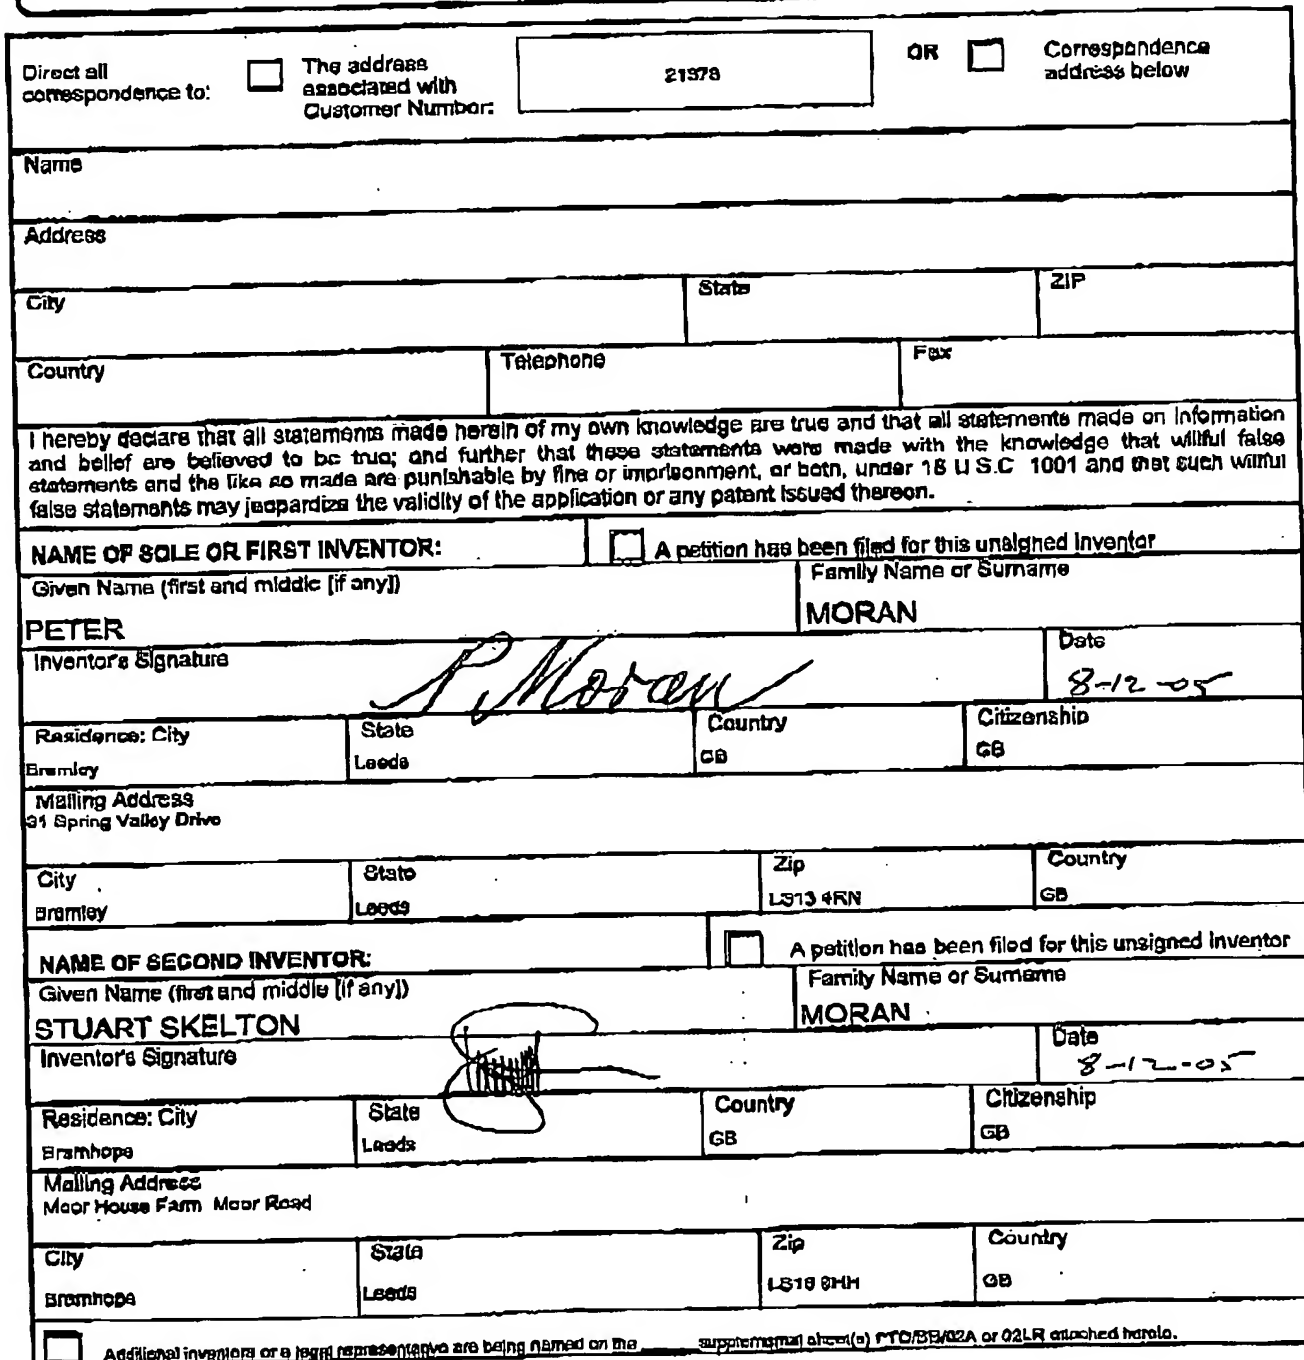 Direct all
correspondence to:
The address
associated with
Customer Number:
OR
Correspondence
address below
Name
Address
City State ZIP
Country Telephone Fax
I hereby declare that all statements made herein of my own knowledge are true and that all statements made on information
and belief are believed to be true; and further that these statements were made with the knowledge that willful false
statements and the like so made are punishable by fine or imprisonment, or both, under 18 U S.C 1001 and that such willful
false statements may jeopardize the validity of the application or any patent issued thereon.
NAME OF SOLE OR FIRST INVENTOR: A petition has been filed for this unsigned inventor
Given Name (first and middle [if any]) Family Name or Surname
PETER MORAN
Inventor's Signature P. Moran Date
8-12-05
Residence: City State Country Citizenship
Bramley Leeds GB GB
Mailing Address
Spring Valley Drive
City State Zip Country
Bramley Leeds LS13 4RN GB
NAME OF SECOND INVENTOR: A petition has been filed for this unsigned inventor
Given Name (first and middle [if any]) Family Name or Surname
STUART SKELTON MORAN
Inventor's Signature Date
8-12-05
Residence: City State Country Citizenship
Bramhope Leeds GB GB
Mailing Address
Moor House Farm Moor Road
City State Zip Country
Bramhope Leeds GB
Additional inventors or a legal representative are being named on the ____ supplemental sheet(s) PTO/SB/02A or 02LR attached hereto.